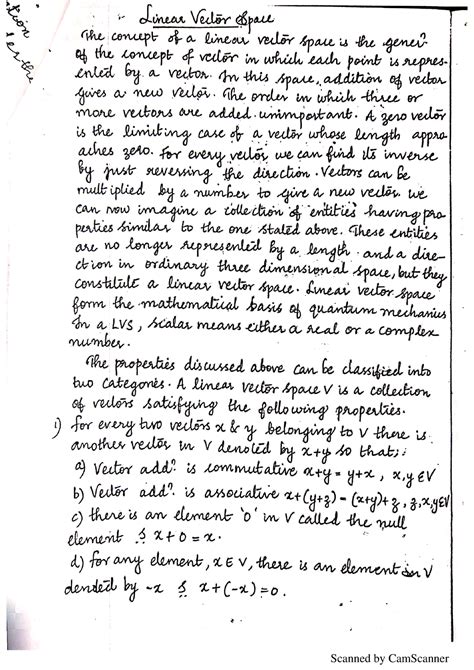 Linear Vector Space
The concept of a linear vector space is the genen
of the concept of vector in which each point is repres-
ented by a vector. In this space, addition of vector
gives a new vector. The order in which three or
more vectors are added unimportant. A zero vector
is the limiting case of a vector whose length appro-
aches zero. For every vector, we can find its inverse
by just reversing the direction. Vectors can be
multiplied by a number to give a new vector. we
can now imagine a collection of entities having pro
perties similar to the one stated above. These entities
are no longer represented by a length and a dire-
ction in ordinary three dimensional space, but they
constitute a linear vector space. Linear vector space
form the mathematical basis of quantum mechanics
In a LVS, scalar means either a real or a complex
number.
The properties discussed above can be classified into
two categories. A linear vector space V is a collection
of vectors satisfying the following properties.
1) for every two vectors x & y belonging to V there is
another vector in V denoted by x+y so that;
a) Vector addn. is commutative x+y = y+x, x,y ∈ V
b) Vector addn. is associative x+(y+z) = (x+y)+z, z,x,y∈V
c) there is an element 'o' in V called the null
element ∋ x+0 = x.
d) for any element, x ∈ V, there is an element in V
denoted by -x ∋ x+(-x)=0.
Scanned by CamScanner